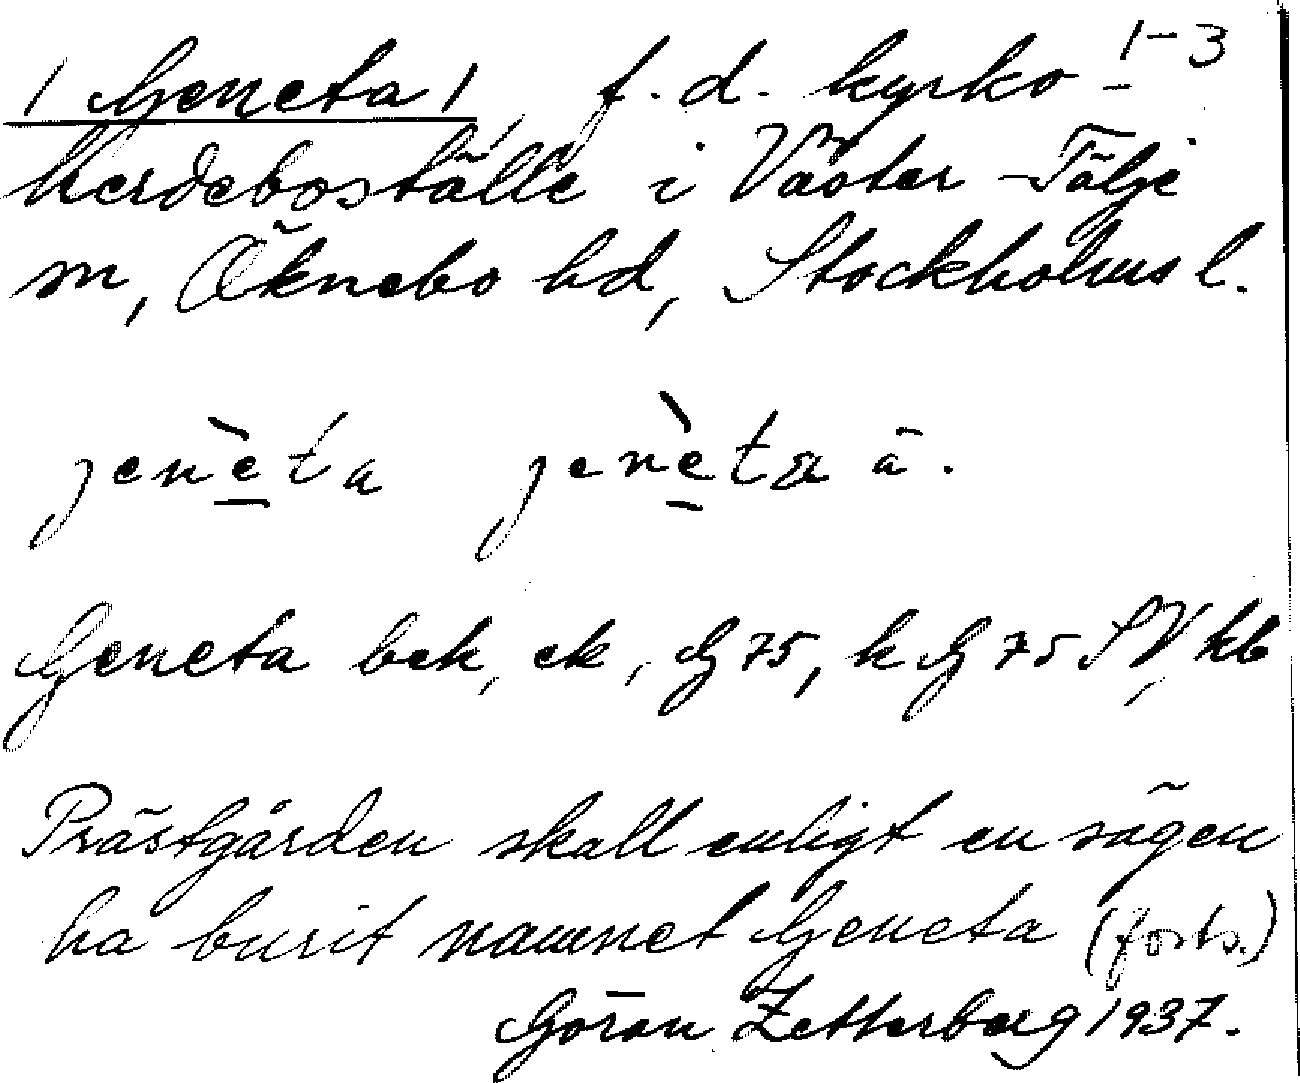 1-3
/ Geneta /, f. d. kyrko-
herdeboställe i Väster-Tälje
sn, Öknebo hd, Stockholms l.
jenèta jenèta ä.
Geneta bek, ek, G 75, k G 75 SV, kb
Prästgården skall enligt en sägen
ha burit namnet Geneta (forts.)
Göran Zetterberg 1937.